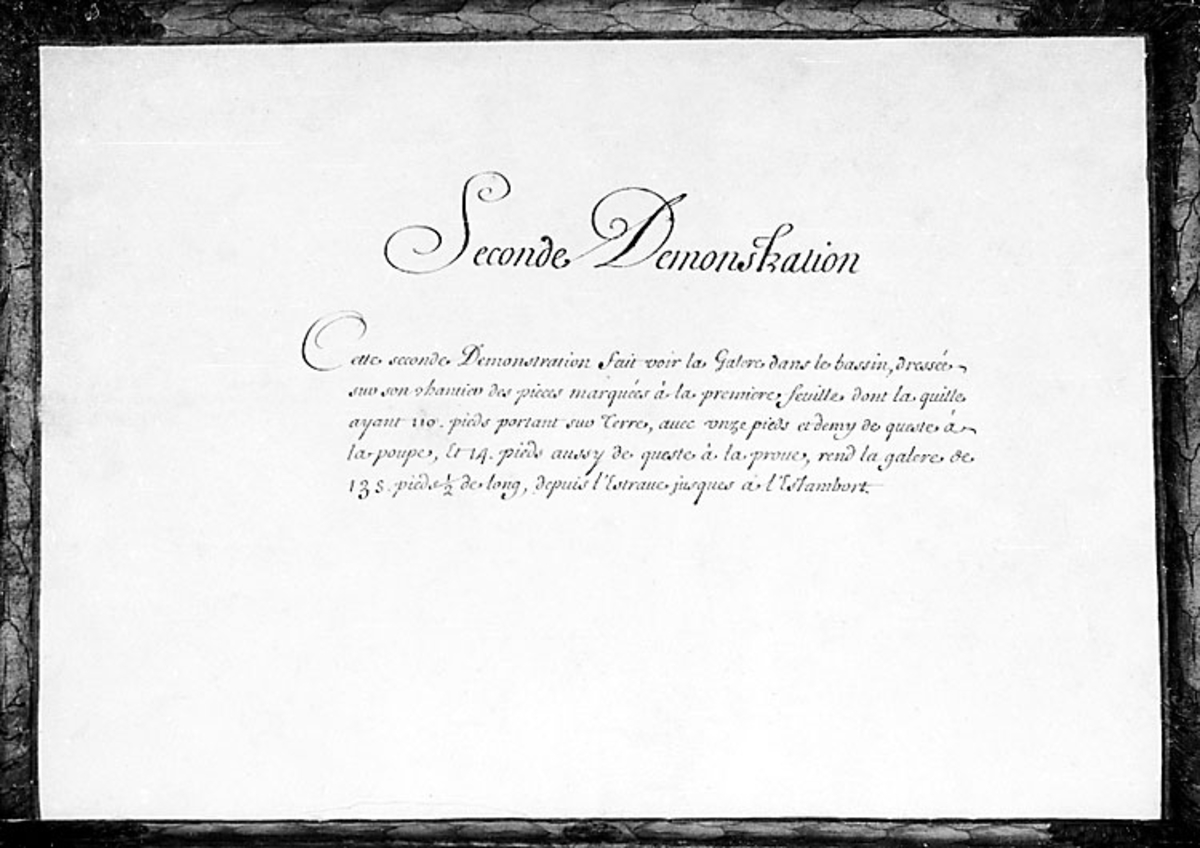 Seconde Demonstration
Cette seconde Demonstration fait voir la Galere dans le bassin, dressée
sur son chantier des pieces marquées à la premiere feuille dont la quille
ayant 110. pieds portant sur Terre, avec vnze pieds et demy de queste à
la poupe, Et 14. pieds aussy de queste à la proue, rend la galere de
135. pieds ½ de long, depuis l'Estraue jusques à l'Estambort.